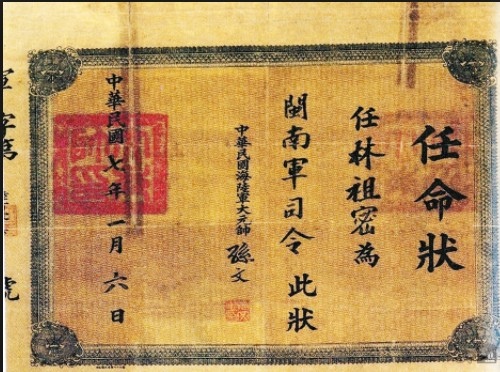 任命狀
任林祖密為
閩南軍司令此狀
中華民國海陸軍大元帥孫文
中華民國七年一月六日
軍字第
號